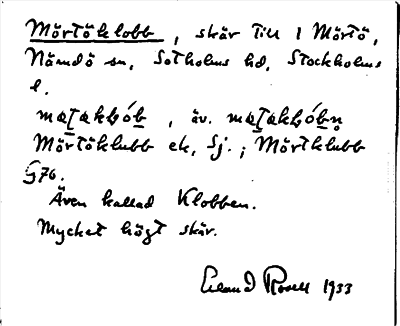 Mörtöklobb, skär till 1 Mörtö,
Nämdö sn, Sotholms hd, Stockholms
l.
Mörtöklubb ek, Sj.; Mörtklubb
G76.
Även kallad Klobben.
Mycket högt skär.
Erland Rosell 1933